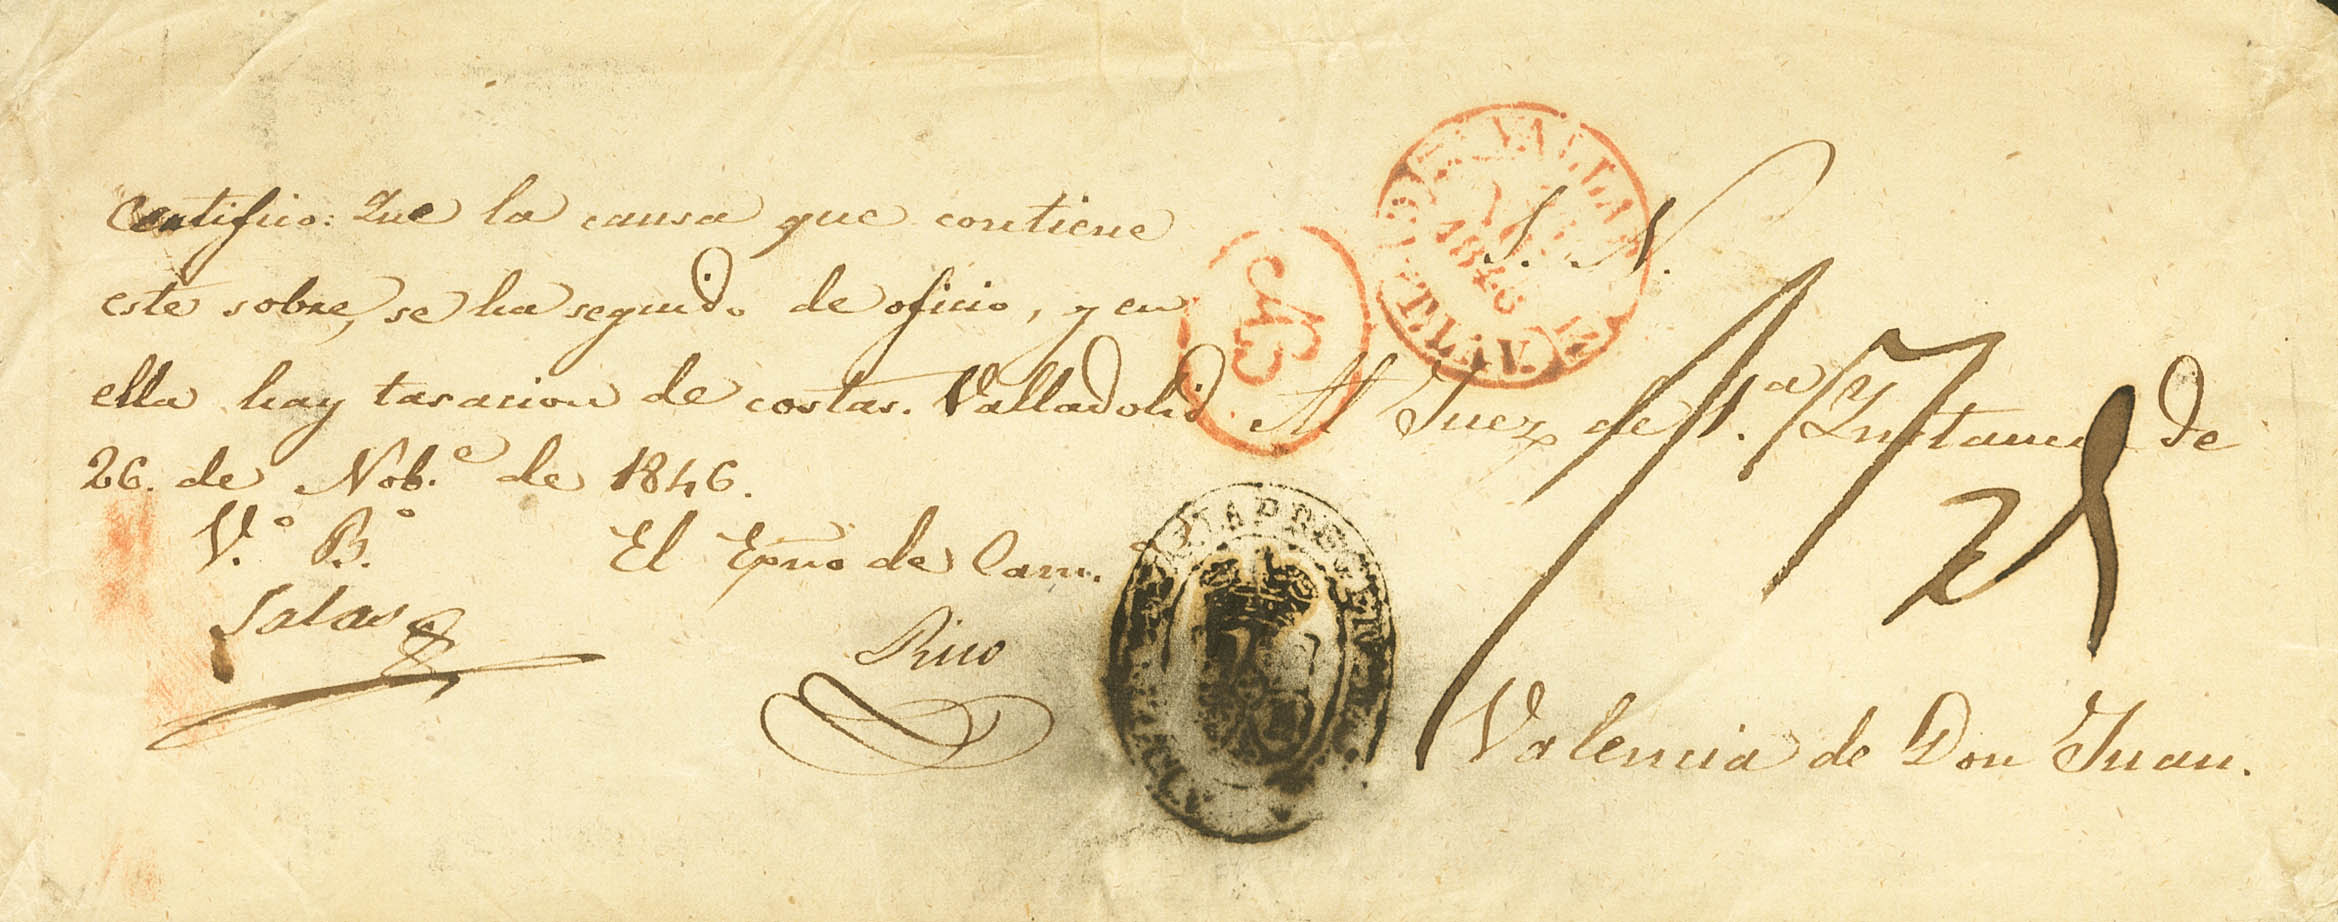 Certifico: Que la causa que contiene
este sobre, se ha seguido de oficio, y en
ella hay tasacion de costas. Valladolid
26. de Nob.e de 1846.
V.o B.o
El Esno de Cam.
Salas
Rico
VALLA
1846
S. N.
Al Juez de 1.a Ynstancia de
Valencia de Don Juan.